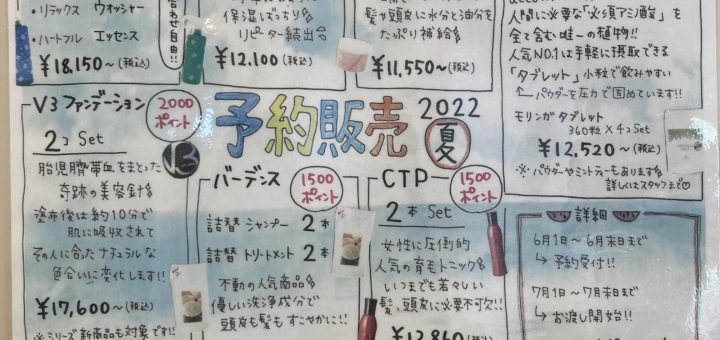 ・リラックス ウォッシャー
・ハートフル エッセンス
¥18,150～(税込)
合わせ自由!!
保湿ばっちり
リピーター続出
¥12,100(税込)
髪、頭皮に水分と油分を
たっぷり補給
¥11,550～(税込)
人間に必要な「必須アミノ酸」を
全て含む唯一の植物!!
人気NO.1は手軽に摂取できる
「タブレット」小粒で飲みやすい
パウダーを圧力で固めています!!
モリンガタブレット
360粒×4コSet
¥12,520～(税込)
※パウダーやミントティーもあります
詳しくはスタッフまで
予約販売
2022
夏
V3ファンデーション
2000
ポイント
2コ Set
胎児臍帯血をまとった
奇跡の美容針
塗布後は約10分で
肌に吸収されて
その人に合ったナチュラルな
色合いに変化します!!
¥17,600～(税込)
※シリーズ新商品も対象です!!
バーデンス
1500
ポイント
詰替シャンプー 2本
詰替トリートメント 2本
不動の人気商品
優しい洗浄成分で
頭皮も髪もすこやかに!!
CTP
1500
ポイント
2本 Set
女性に圧倒的
人気の育毛トニック
いつまでも若々しい
髪、頭皮に必要不可欠!!
(税込)
詳細
6月1日～6月末日まで
予約受付!!
7月1日～7月末日まで
お渡し開始!!